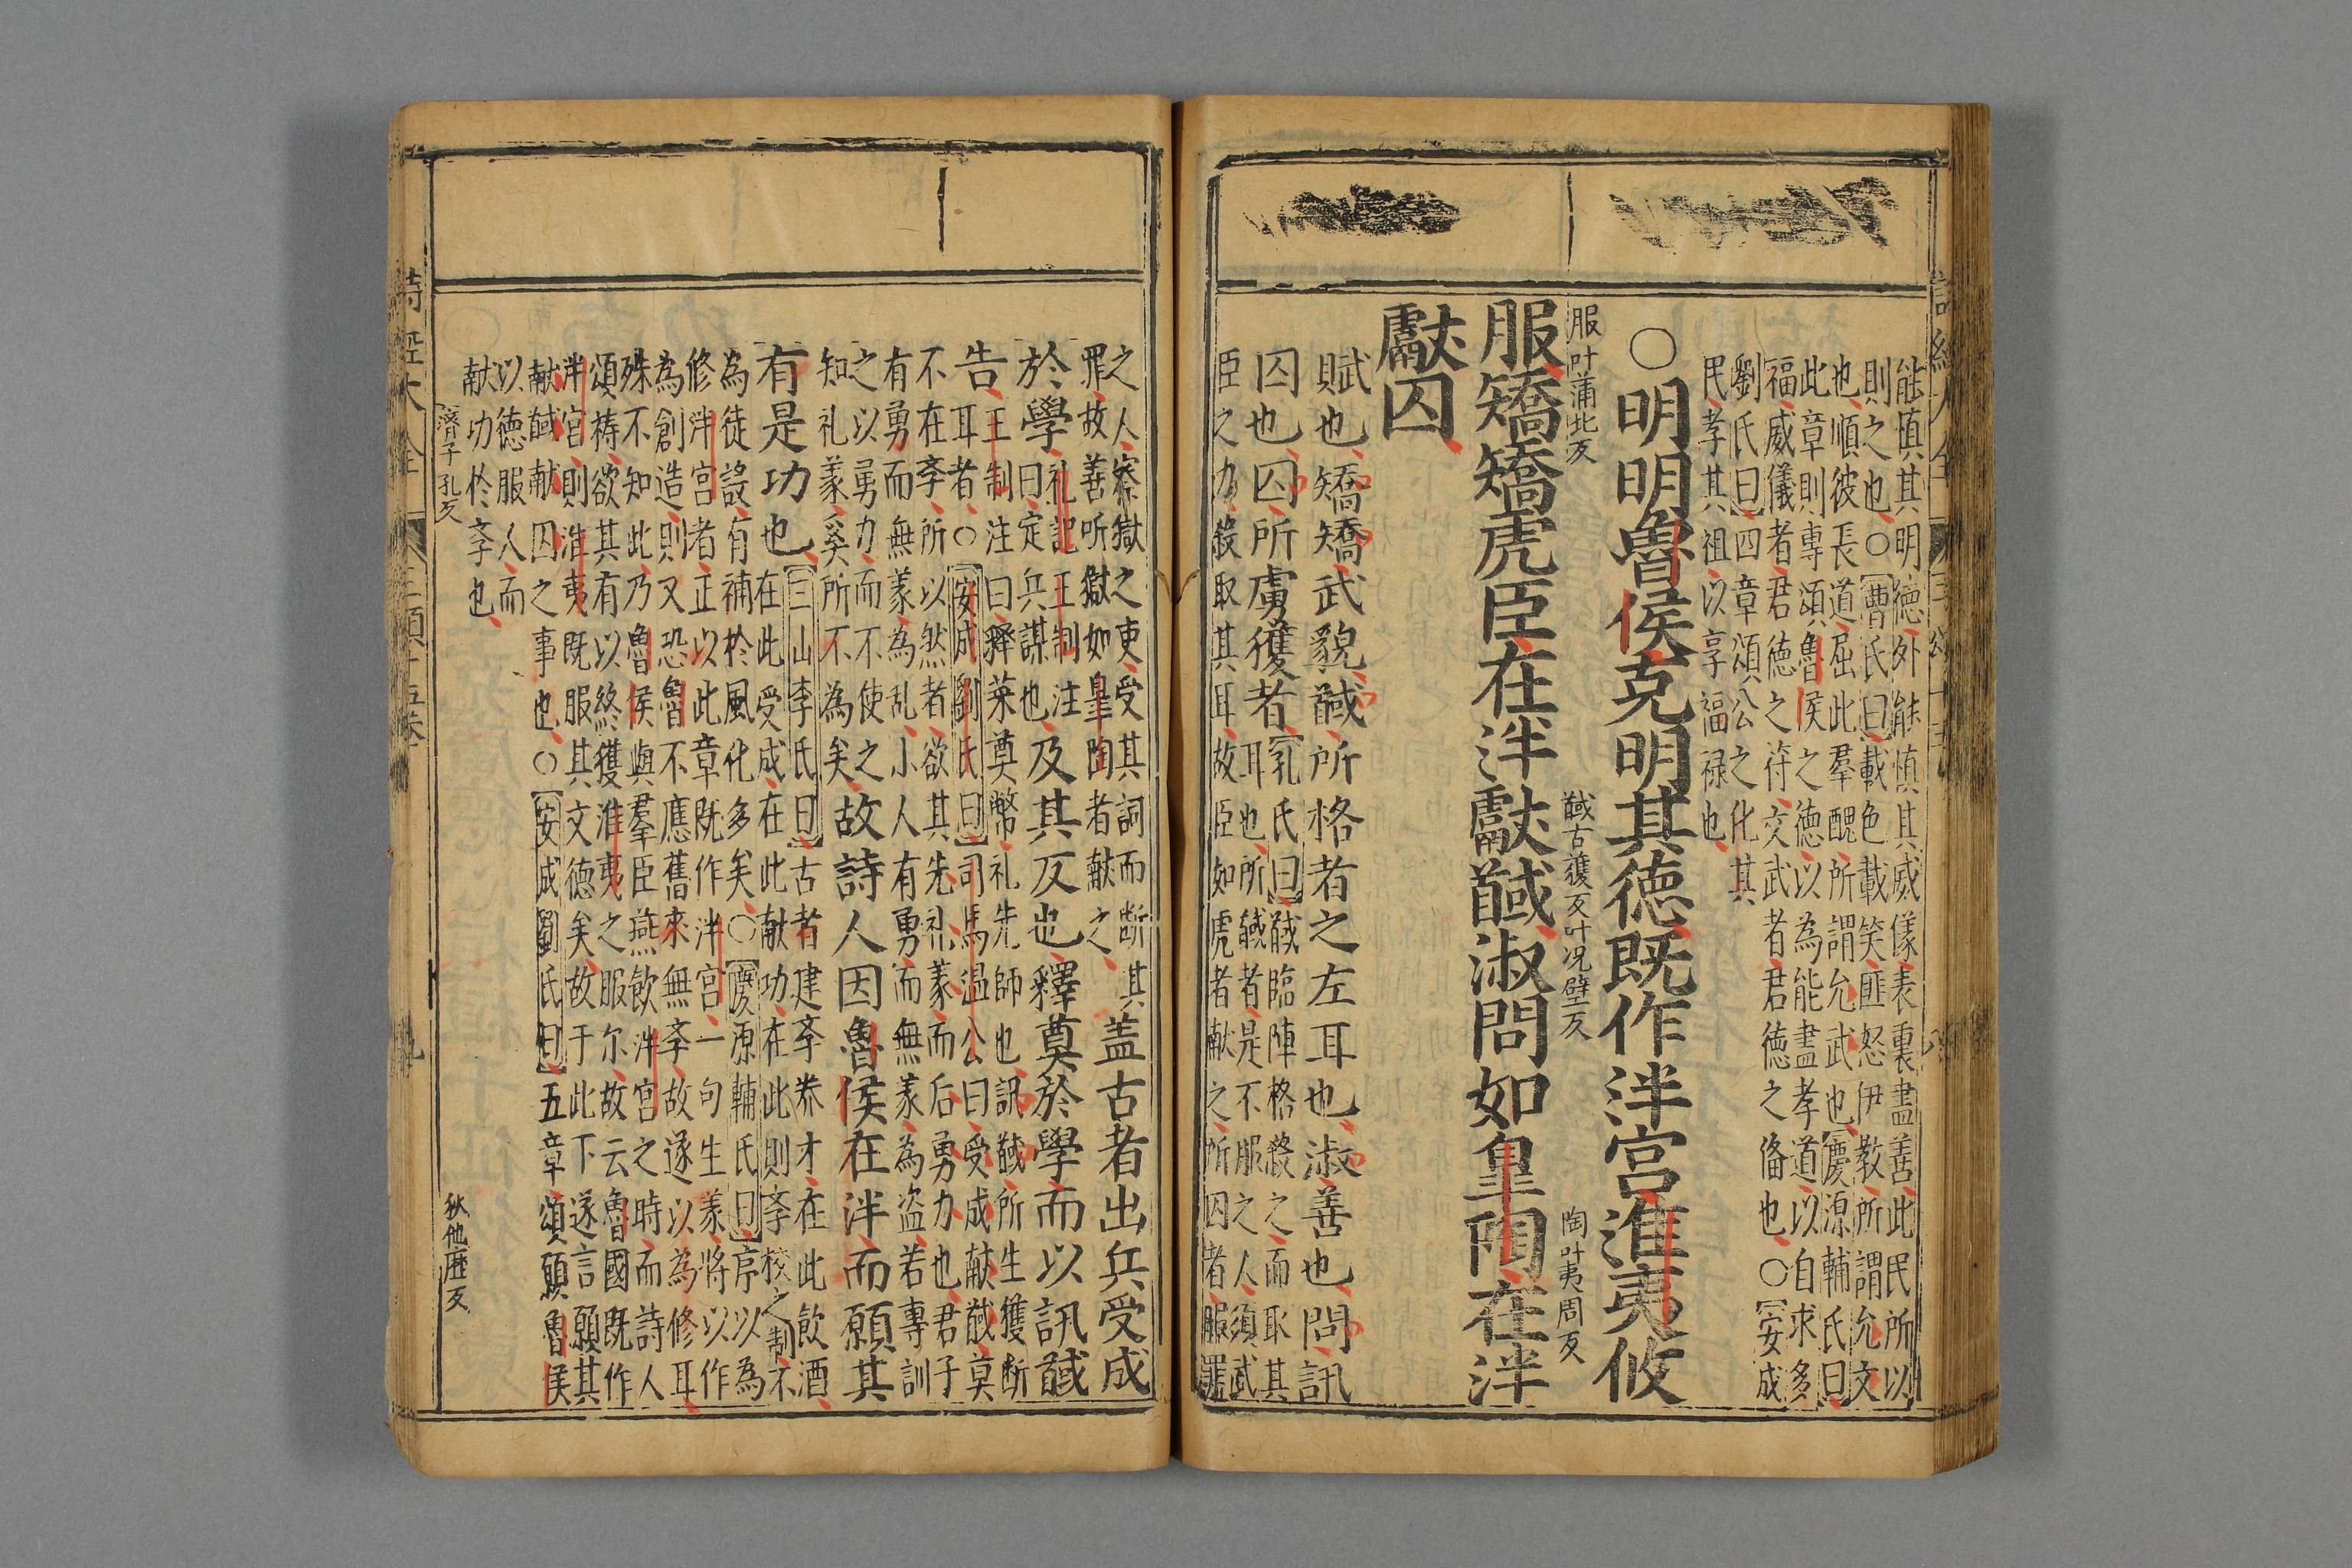 能慎其明德外能慎其威儀表裏盡善此民所以
則之也○曹氏曰載色載笑匪怒伊教所謂允文
也順彼長道屈此羣醜所謂允武也慶源輔氏曰
此章則專頌魯侯之德以為能盡孝道以自求多
福威儀者君德之符文武者君德之俻也○安成
劉氏曰四章頌公之化其
民孝其祖以享福禄也
○明明魯侯克明其德既作泮宮淮夷攸
服叶蒲北反
馘古獲反叶况壁反
陶叶夷周反
服矯矯虎臣在泮獻馘淑問如皐陶在泮
獻囚
賦也矯矯武貌馘所格者之左耳也淑善也問訊
囚也囚所虜獲者
孔氏曰馘臨陣格殺之而取其
耳也所馘者是不服之人須武
臣之力殺取其耳故臣如虎者献之所囚者服罪
之人察獄之吏受其詞而断其
罪故善听獄如皐陶者献之
盖古者出兵受成
於學
礼記王制注
曰定兵謀也
及其反也釋奠於學而以訊馘
告
王制注曰釋菜奠幣礼先師也訊馘所生獲断
耳者○安成劉氏曰司馬温公曰受成献馘莫
不在斈所以然者欲其先礼義而后勇力也君子
有勇而無義為乱小人有勇而無義為盗若專訓
之以勇力而不使之
知礼義奚所不為矣
故詩人因魯侯在泮而願其
有是功也
三山李氏曰古者建斈養才在此飲酒
在此受成在此献功在此則斈校之制不
為徒設有補於風化多矣○慶源輔氏曰序以為
修泮宮者正以此章既作泮宮一句生義將以作
為創造則又恐魯不應舊來無斈故遂以為修耳
殊不知此乃魯侯與羣臣燕飲泮宮之時而詩人
頌祷欲其有以終獲淮夷之服尔故云魯國既作
泮宮則淮夷既服其文德矣故于此下遂言願其
献馘献囚之事也○安成劉氏曰五章頌願魯侯
以德服人而
献功於斈也
濟子孔反
狄他歷反
詩經大全
三頌十五卷
九